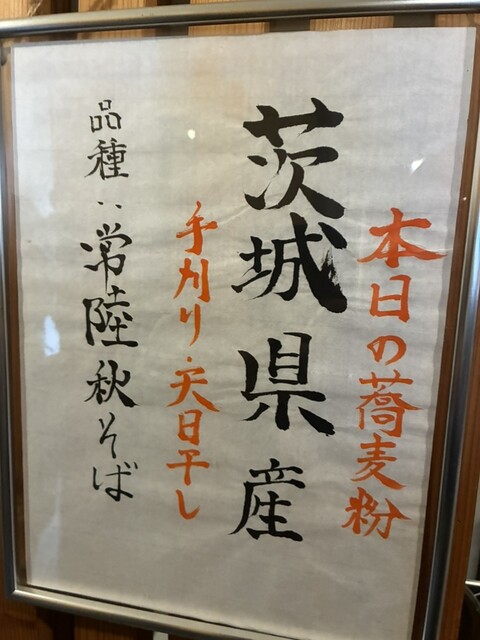 本日の蕎麦粉
茨城県産
手刈り・天日干し
品種:常陸秋そば